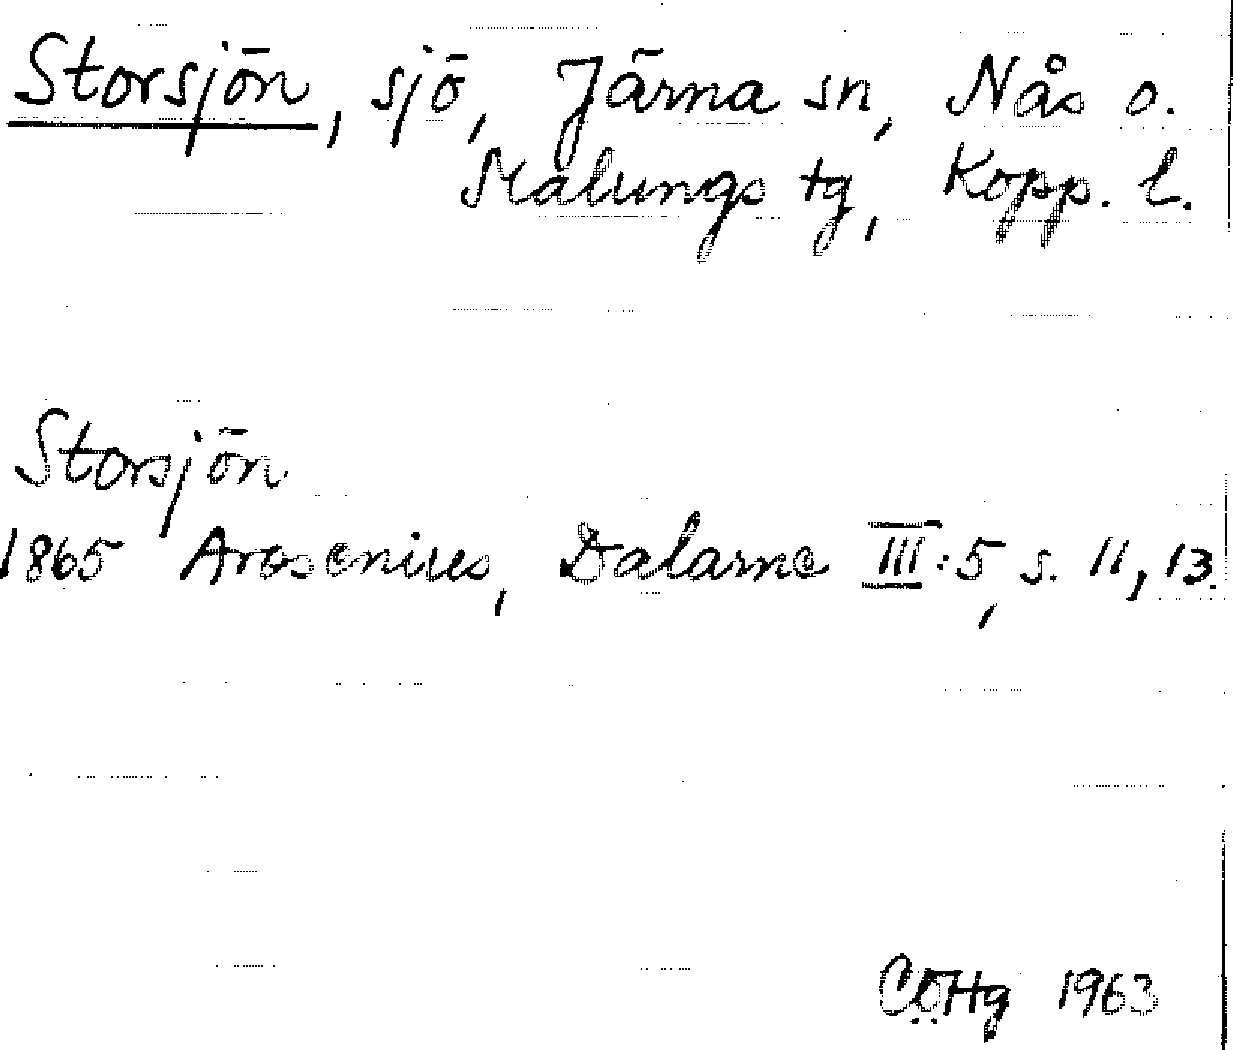 Storsjön, sjö, Järna sn, Nås o.
Malungs tg, Kopp. l.
Storsjön
1865 Arosenius, Dalarne III:5, s. 11, 13.
CÖHg 1963